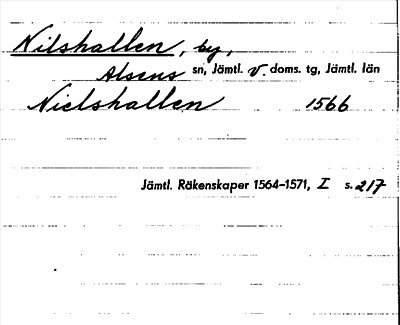 Nilshallen, by,
Alsens sn, Jämtl. v. doms. tg, Jämtl. län
Nielshallen 1566
Jämtl. Räkenskaper 1564-1571, I s. 217